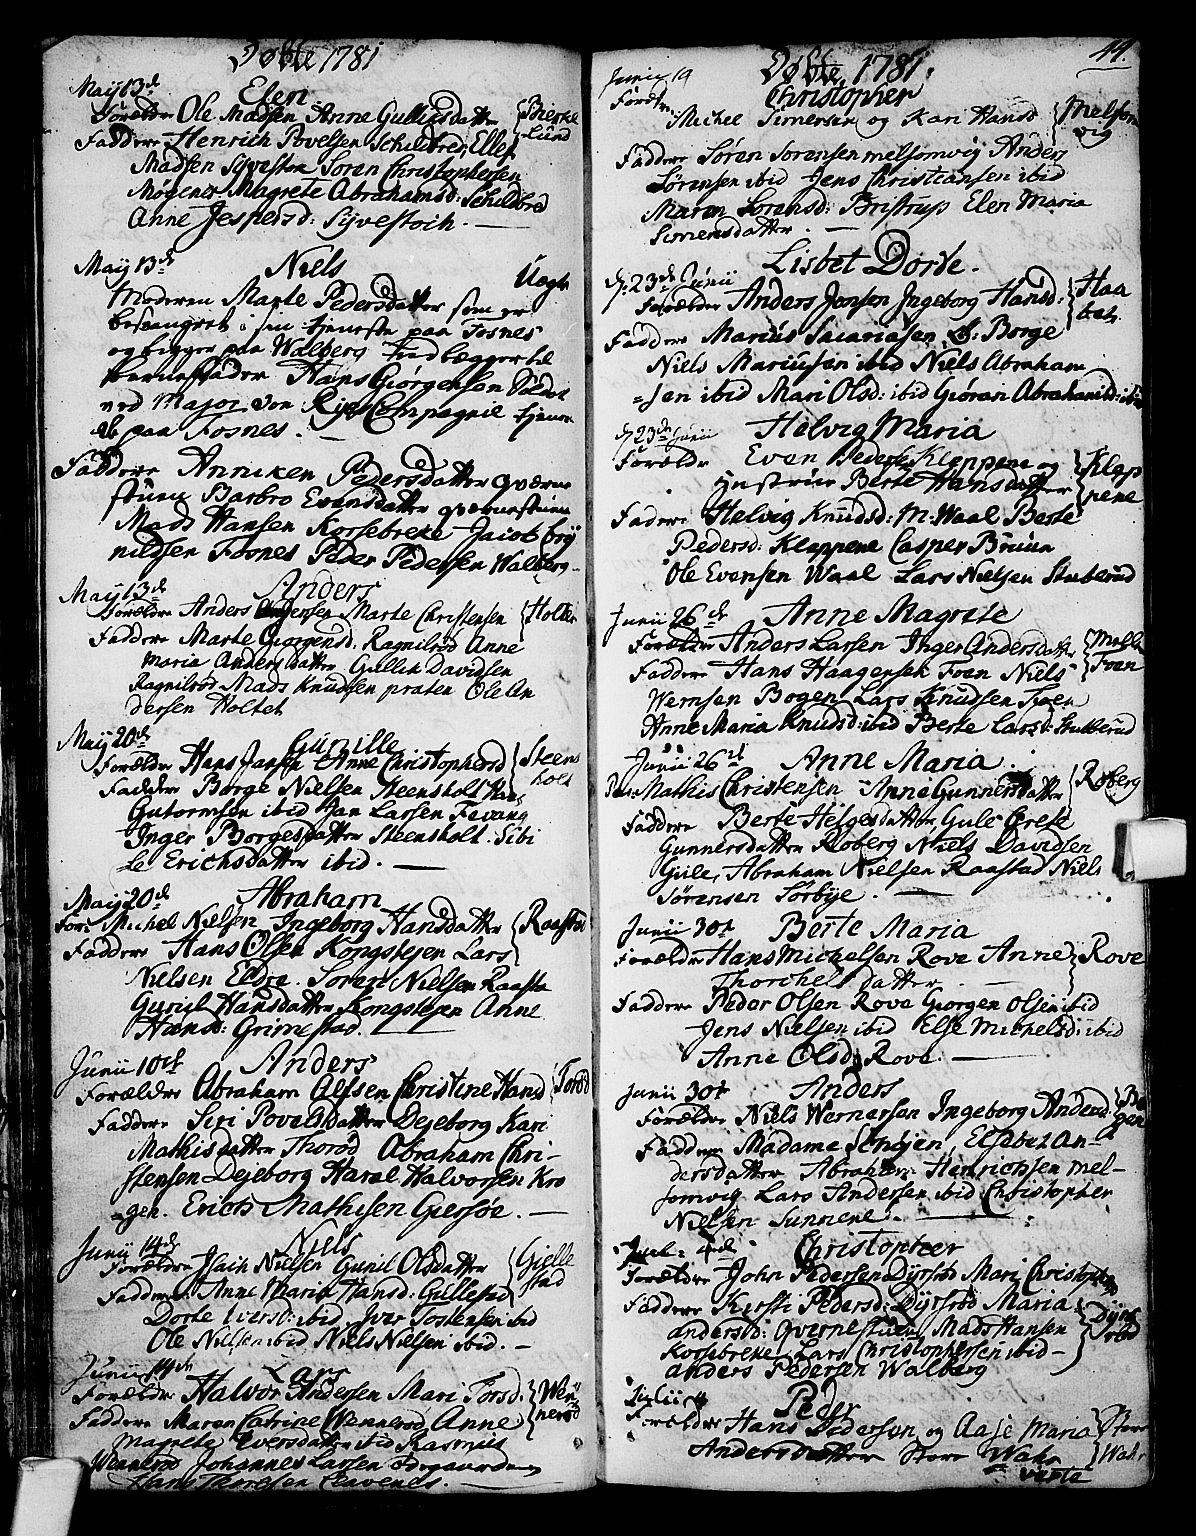 Døbte 1781
Maij 13de
Elen
Forældre Ole Madsen Anne Gulligsdatter
Bierke
lund
Faddere Henrich Povelsen Schilbred, Ellef
Madsen Sijvesten Soren Christophersen
Mogenes Magrete Abrahamsd: Schilbred
Anne Jespersd: Sijvestoch.
Maij 13de
Niels
Uægte
Moderen Marte Pedersdatter som er
besvangret i sin tjeneste paa Fosnes
og ligger paa Walberg Endlægger til
barnefader Hans Giørgensen Soldat
ved Major von Compagnie tjenende
paa Fosnes.
Faddere Anniken Pedersdatter qværne
stuen Barbro Evensdatter qværnestuen
Mads Hansen Korsebreke Jacob Brÿ
nildsen Fosnes Peder Pedersen Walberg
Maij 13de
Anders
Forældre Anders Marte Christensen
Holtet
Faddere Marte Giorgensd. Ragnilrød Anne
Maria Andersdatter Gullen Davidsen
Ragnilrød Mads Knudsen præten Ole An
dersen Holtet
Maij 20de
Gunille
Forældre Hans Jansen Anne Christophersd
Steens
holt
Faddere Borge Nielsen Steensholt Hans
Gutormsen ibid Jan Larsen Fevang
Inger Borgesdatter Steensholt. Sibi
le Erichsdatter ibid.
Maij 20de
Abraham
For: Michel Nielsen Ingeborg Hansdatter
Raastad
Faddere Hans Olsen Kongstejen Lars
Nielsen Eldre. Soren Nielsen Raasta
Guriel Hansdatter Kongstejen Anne
Hansd: Grimestad.
Junii 10de
Anders
Forældre Abraham Alfsen Christine Hansd
Torød
Faddere Siri Povelsdatter Dejeborg Kari
Mathisdatter Thorød Abraham Chri-
stensen Dejeborg Haral Halvorsen Kro
gen. Erich Mathisen Giersøe.
Junij 14de
Niels
Forældre Nielsen Gunil Olsdatter
Gielle
stad
Faddere Anne Maria Hansd: Gullestad
Dorte Iversd: ibid, Iver Tostensen ibid
Ole Nielsen ibid Niels Nielsen ibid.
Junii 14de
Lars
Forældre Halvor Andersen Mari Torsd:
Wen
nerød
Faddere Maren Catrine Wennerød Anne
Magrete Eversdatter ibid Rasmus
Wennerød Johannes Larsen
Hans
44.
Døbte 1781.
Junii 19
Christopher
Foreldre
Michel Simensen og Kari Hansd
Melsom
vig
Faddere Søren Sorensen melsomvig Anders
Sørensen ibid Jens Christiansen ibid
Maren Sorensd: Bristrup Elen Maria
Simensdatter.
d: 23de Junii
Lisbet Dorte.
Forældre Anders Jonsen Ingeborg Hansd:
Haa
bet.
Faddere Marius Borge
Niels Mariussen ibid Niels Abraham
=sen ibid Mari Olsd: ibid Giøran Abrahamsd: ibid
d 23de Junii
Helvig Maria
Forældre Even Pederse Kleppene og
Hustrue Berte Hansdatter
Klep
pene
Faddere Helvig Knudsd: M: Waal Berte
Pedersd: Kleppene Casper Bruun
Ole Evensen Waal Lars Nielsen Stuberud
Junii 26de
Anne Magrete
Forældre Anders Larsen Inger Andersdatter
Mell:
Foen
Faddere Hans Haagensen Foen Niels
Wernsen Bogen Lars Knudsen Foen
Anne Maria Knudsd: ibid Berte Larsd: Stubberud
Junii 26de
Anne Maria.
For: Mathis Christensen Anne Gunnersdatter
Roberg
Faddere Berte Helgesdatter Gule Grete
Gunnersdatter Roberg Niels Davidsen
Gule, Abraham Nielsen Raastad Niels
Sørensen Sørbye.
Junii 30t
Berte Maria
Forældre Hans Michelsen Rove Anne
Thorchelsdatter
Rove
Faddere Peder Olsen Rove Georgen Olsen ibid
Jens Nielsen ibid Else Michelsd: ibid
Anne Olsd: Rove.
Junii 30t
Anders
Forældre Niels Wernersen Ingeborg Andersd
Bo
gen
Faddere Madame Elsebet An-
dersdatter Abraham Henrichsen mel-
somvig Lars Andersen ibid Christopher
Nielsen Sunnene.
Juli 4de
Christopher
Forældre John Pedersen Dyrsrød Mari Christophersd
Faddere Kirsti Pedersd: Dyrsrød Maria
Dÿrs
rød
andersd: Qvernestuen Mads Hansen
Korsebreke Lars Christophersen ibid-
anders Pedersen Walberg
Julii 4
Peder
Forældre Hans Pedersen og Aase Maria
Store
Wahr
Andersdatter Store Wahr
verte